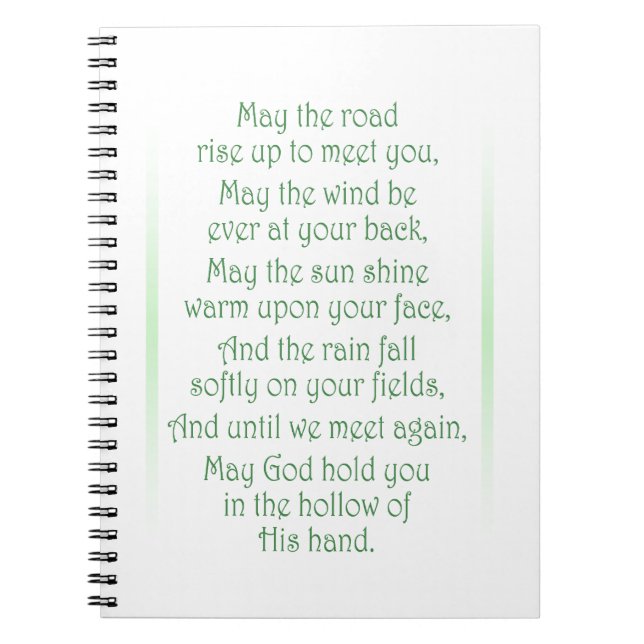 May the road
rise up to meet you,
May the wind be
ever at your back,
May the sun shine
warm upon your face,
And the rain fall
softly on your fields,
And until we meet again,
May God hold you
in the hollow of
His hand.